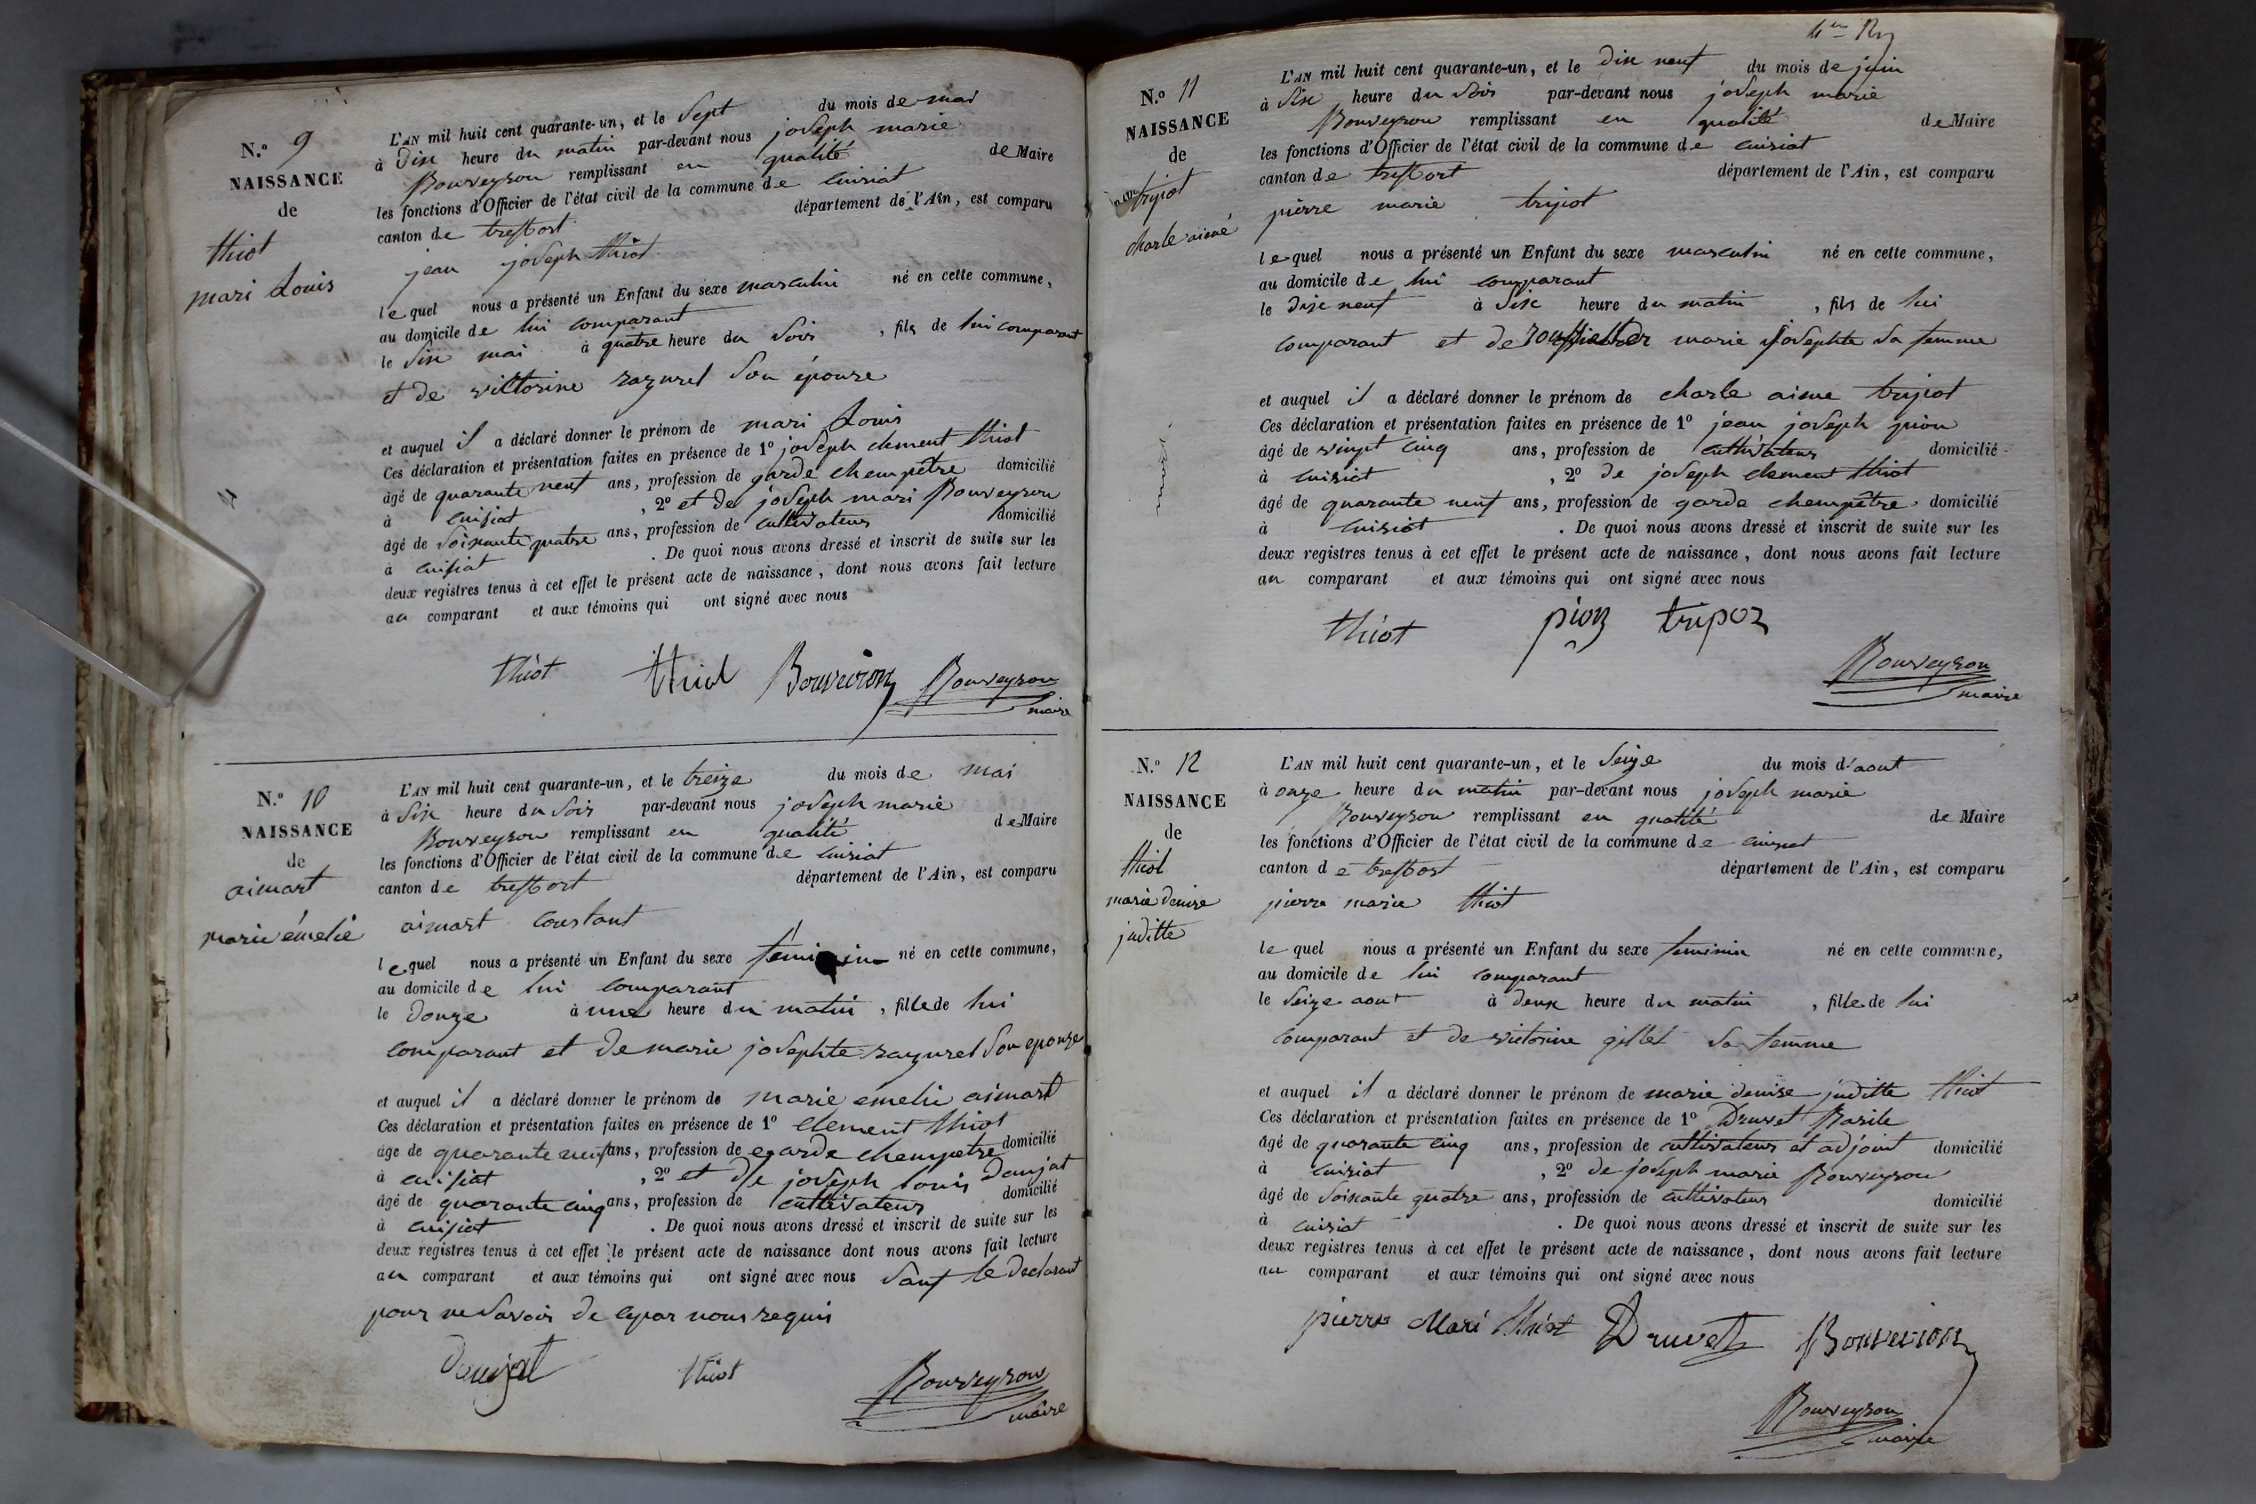 N.° 9
NAISSANCE
de
thiot
mari Louis
L'AN mil huit cent quarante-un, et le Sept du mois de mai
à Dix heure du matin par-devant nous joseph marie
Bouveyron remplissant en qualité de Maire
les fonctions d'Officier de l'état civil de la commune de cuisiat
canton de treffort département de l'Ain, est comparu
jean joseph thiot
lequel nous a présenté un Enfant du sexe masculin né en cette commune,
au domicile de lui comparant
le Six mai à quatre heure du Soir, fils de lui comparant
et de victorine razurel Son épouse
et auquel il a déclaré donner le prénom de mari Louis
Ces déclaration et présentation faites en présence de 1° joseph clement thiot
âgé de quarante neuf ans, profession de garde chempêtre domicilié
à cuisiat, 2° et de joseph mari Bouveyron
âgé de Soixante quatre ans, profession de cultivateur domicilié
à cuisiat. De quoi nous avons dressé et inscrit de suite sur les
deux registres tenus à cet effet le présent acte de naissance, dont nous avons fait lecture
au comparant et aux témoins qui ont signé avec nous
thiot thiol Bouveiron Bouveyron
maire
N.° 10
NAISSANCE
de
aimart
marie émelie
L'AN mil huit cent quarante-un, et le treize du mois de mai
à Six heure du Soir par-devant nous joseph marie
Bouveyron remplissant en qualité de Maire
les fonctions d'Officier de l'état civil de la commune de cuisiat
canton de treffort département de l'Ain, est comparu
aimart constant
lequel nous a présenté un Enfant du sexe féminin né en cette commune,
au domicile de lui comparant
le Douze à une heure du matin, fille de lui
comparant et de marie josephte razurel Son epouze
et auquel il a déclaré donner le prénom de marie emelie aimart
Ces déclaration et présentation faites en présence de 1° clement thiot
âgé de quarante neuf ans, profession de garde chempetre domicilié
à cuisiat, 2° et de joseph louis Danjat
âgé de quarante cinq ans, profession de cultivateur domicilié
à cuisiat. De quoi nous avons dressé et inscrit de suite sur les
deux registres tenus à cet effet le présent acte de naissance dont nous avons fait lecture
au comparant et aux témoins qui ont signé avec nous Sauf le Declarant
pour ne Savoir de ce par nous requis
Danjat thiot Bouveyron
maire
N.° 11
NAISSANCE
de
tripot
charle aimé
L'AN mil huit cent quarante-un, et le Dix neuf du mois de juin
à Six heure du Soir par-devant nous joseph marie
Bouveyron remplissant en qualité de Maire
les fonctions d'Officier de l'état civil de la commune de cuisiat
canton de treffort département de l'Ain, est comparu
pierre marie tripot
lequel nous a présenté un Enfant du sexe masculin né en cette commune,
au domicile de lui comparant
le Dix neuf à Six heure du matin, fils de lui
comparant et de marie josephte Sa femme
et auquel il a déclaré donner le prénom de charle aime tripot
Ces déclaration et présentation faites en présence de 1° jean joseph pion
âgé de vingt cinq ans, profession de cultivateur domicilié
à cuisiat, 2° de joseph clement thiot
âgé de quarante neuf ans, profession de garde chempêtre domicilié
à cuisiat. De quoi nous avons dressé et inscrit de suite sur les
deux registres tenus à cet effet le présent acte de naissance, dont nous avons fait lecture
au comparant et aux témoins qui ont signé avec nous
thiot pion tripoz
Bouveyron
maire
N.° 12
NAISSANCE
de
thiol
marie denise
juditte
L'AN mil huit cent quarante-un, et le Seize du mois d'aout
à onze heure du matin par-devant nous joseph marie
Bouveyron remplissant en qualité de Maire
les fonctions d'Officier de l'état civil de la commune de cuisiat
canton de treffort département de l'Ain, est comparu
pierre marie thiot
lequel nous a présenté un Enfant du sexe feminin né en cette commune,
au domicile de lui comparant
le Seize aout à deux heure du matin, fille de lui
comparant et de victorine gillet Sa femme
et auquel il a déclaré donner le prénom de marie denise juditte thiot
Ces déclaration et présentation faites en présence de 1° Druvet Basile
âgé de quarante cinq ans, profession de cultivateur et adjoint domicilié
à cuisiat, 2° de joseph marie Bouveyron
âgé de Soixante quatre ans, profession de cultivateur domicilié
à cuisiat. De quoi nous avons dressé et inscrit de suite sur les
deux registres tenus à cet effet le présent acte de naissance, dont nous avons fait lecture
au comparant et aux témoins qui ont signé avec nous
pierre Mari thiot Druvet Bouveiron
Bouveyron
maire